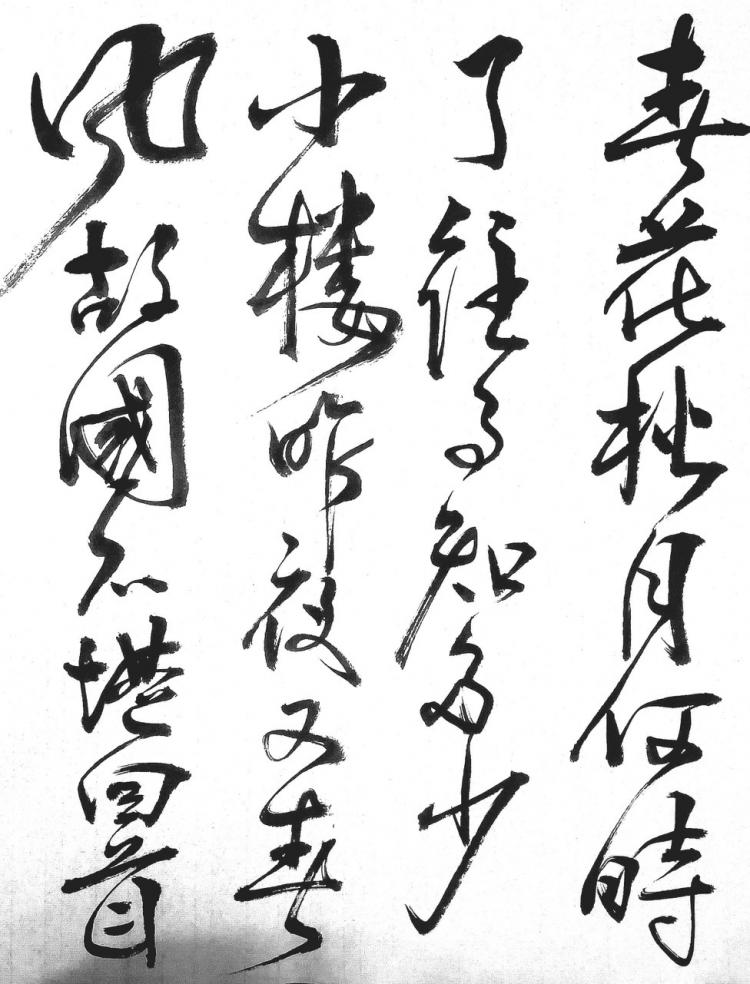 春花秋月何時
了往事知多少
小楼昨夜又春
风故國不堪回首